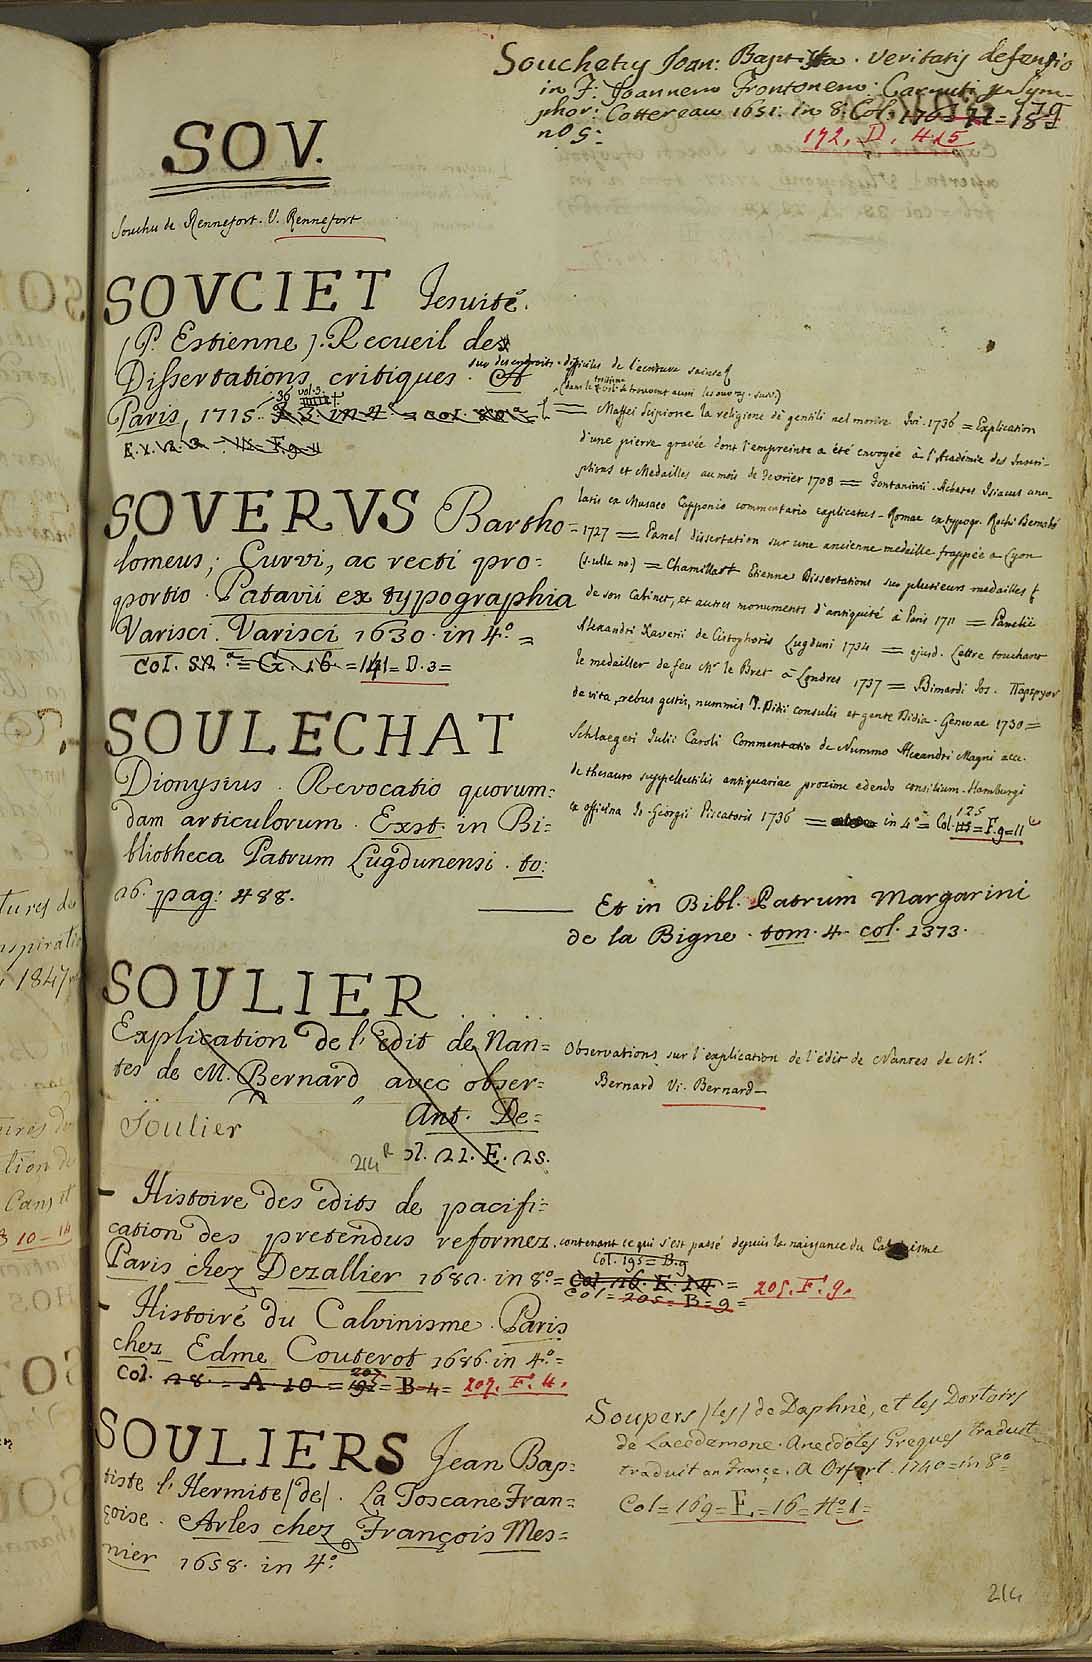 Souchety Joan: Baptista. veritatis defensio
in F. Joannem Frontonem: Carnuti p. Sym-
phor: Cottereau 1651. in 8. Col.
no 5:
172. D. 4
SOV.
Souchu de Rennefort. V. Rennefort
SOVCIET Jesuite.
(P. Estienne). Recueil des
Dissertations critiques. sur des endroits difficiles de l'ecriture sainte
Paris, 1715. in 4º
(dans le troisieme vol. se trouvent aussi les ouvrg. suiv.)
= Maffei Scipione la religione de gentili nel morire. Ivi. 1736 = Explication
d'une pierre gravée dont l'empreinte a été envoyée à l'Académie des Inscri-
ptions et Medailles au mois de Fevrier 1708 = Fontaninii. Achates Isiacus anu-
laris ex Musaeo Capponio commentario explicatus. Romae ex typogr. Rochi Bernabó
1727 = Panel dissertation sur une ancienne medaille frappée a Lyon
(s. ulla no.) = Chamillart Etienne Dissertations sur plusieurs medailles
de son Cabinet, et autres monuments d'antiquité à Paris 1711 = Panelii
Alexandri Xaverii de Cistophoris Lugduni 1734 = ejusd. Lettre touchant
le medailler de feu Mr le Bret à Londres 1737 = Bimardi Jos.
de vita, rebus gestis, nummis T. Didii consulis et gente Didia. Genevae 1730 =
Schlaegeri Julii Caroli Commentatio de Nummo Alexandri Magni acc.
de thesauro suppellectilis antiquariae proxime edendo consilium. Hamburgi
ex officina Jo. Georgii Piscatoris 1736 = in 4º = Col. 125 = F. g = 11
SOVERVS Bartho=
lomeus; Curvi, ac recti pro=
portio. Patavii ex typographia
Varisci. Varisci 1630. in 4º. =
Col. = G. 16 = 141 = D. 3 =
SOULECHAT
Dionysius. Revocatio quorum=
dam articulorum. Exst. in Bi=
bliotheca Patrum Lugdunensi. to:
26. pag: 488.
Et in Bibl. Patrum Margarini
de la Bigne. tom. 4. col. 1373.
SOULIER
Explication de l'edit de Nan=
tes de M. Bernard avec obser=
Soulier
Ant. De=
ol. 21. E. 25.
214R
Observations sur l'explication de l'édit de Nantes de Mr
Bernard Vi. Bernard
- Histoire des edits de pacifi=
cation des pretendus reformez. contenant ce qui s'est passé depuis la naissance du Calvinisme
Paris chez Dezallier 1682. in 8º. =
Col. 195 = B. 9
Col. 26. E. 14 =
Col = 205 = B = 9 =
205. F. 9.
- Histoire du Calvinisme. Paris
chez Edme Couterot 1686. in 4º. =
Col. 28. = A 10 = = B = 4 = 207. F. 4.
SOULIERS Jean Bap=
tiste l'Hermite (de). La Toscane Fran=
çoise. Arles chez François Mes=
nier 1658. in 4º.
Soupers (les) de Daphné, et les Dortoirs
de Lacedemone. Anecdotes Greques traduit
traduit en France. A Oxfort. 1740 = in 8º
Col = 169 = E = 16 = Nº 1 =
214